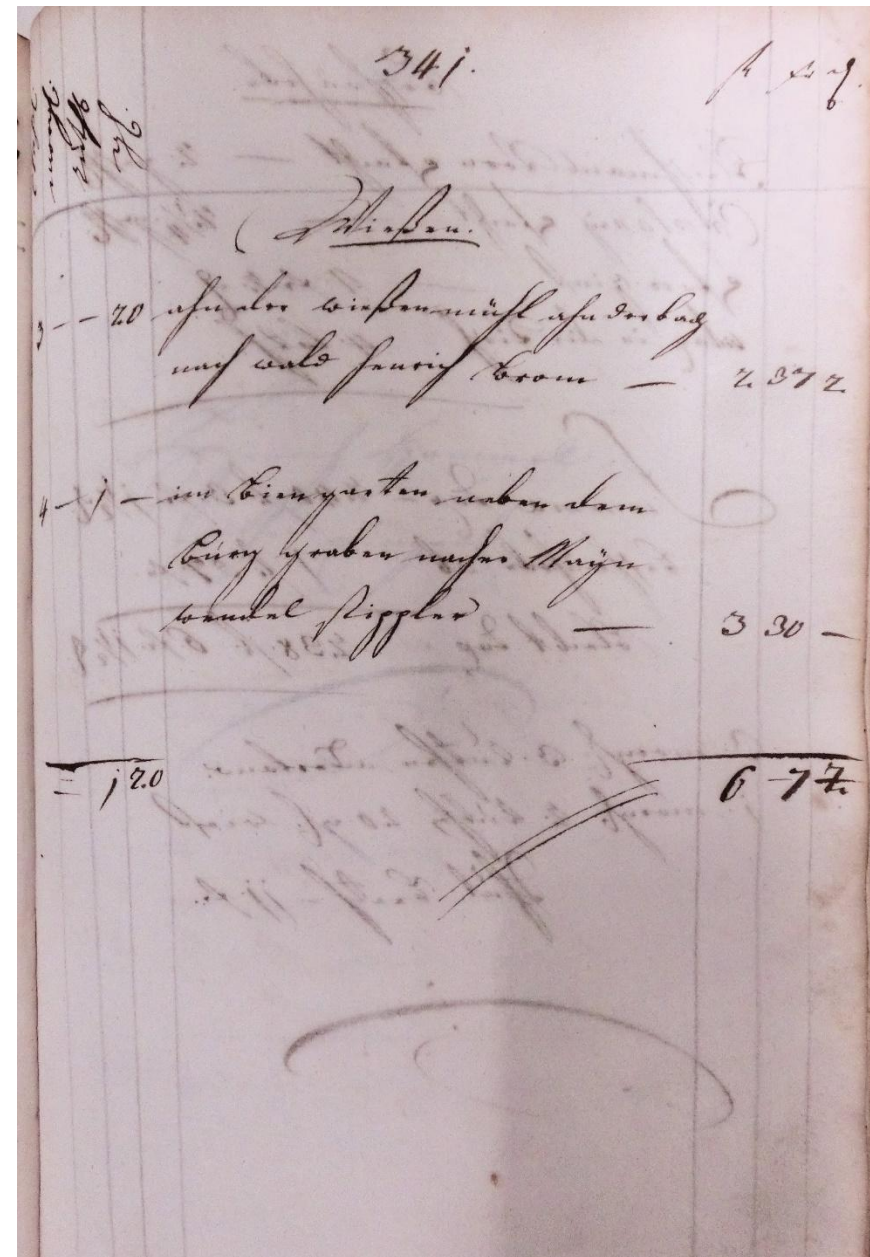 341.
fl xr ₰
Wießen.
3 - - 20 ahn der wießen mühl ahn der bach
nach wald Henrich Brom — 2 37 2
4 - 1 - im Biengarten neben dem
Burg graben nacher Mayn
wendel Stippler — 3 30 -
= 1 20 6 7 2